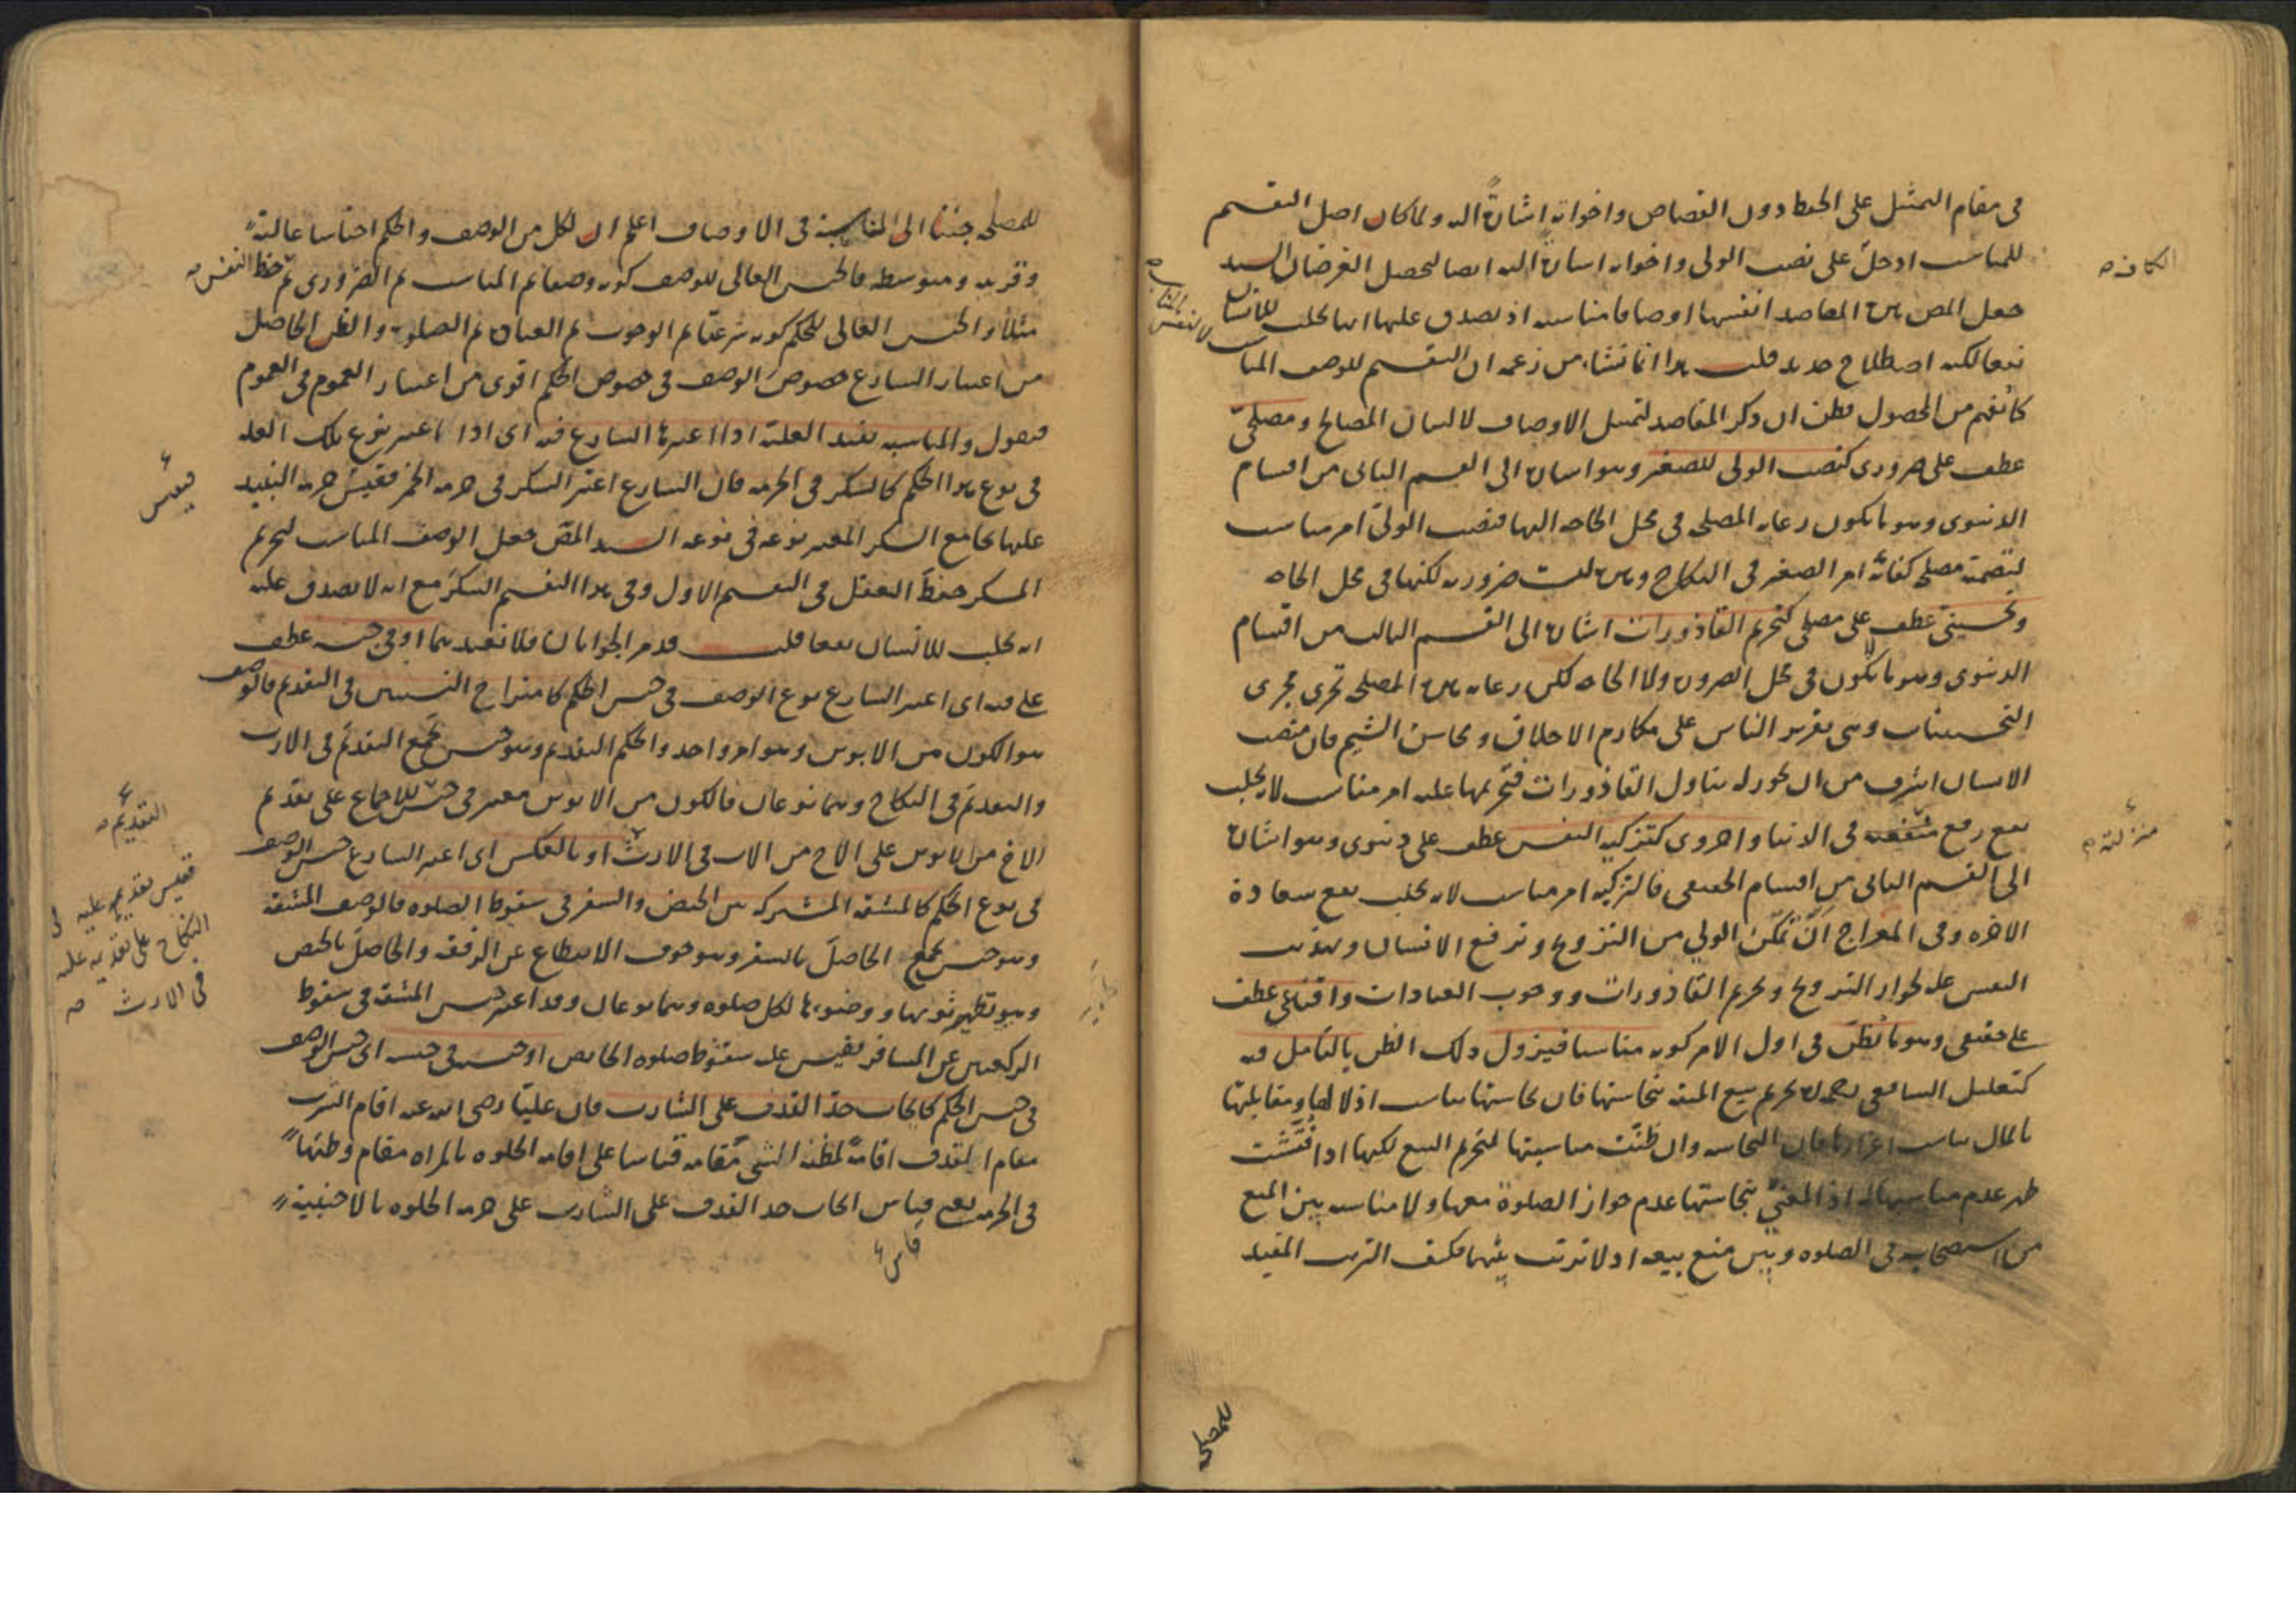 فى مقام التمثيل على الحفظ دون القصاص واخواته اشارةً اليه ولما كان اصل التقسيم
للمناسب ادخل على نصب الولى واخواته اشارة اليه ايضا ليحصل الغرضان السيد
جعل المص هذه المقاصد انفسها اوصافا مناسبه اذ يصدق عليها انها تجلب للانسان
نفعا لكنه اصطلاح جديد قلت هذا انما نشاء من زعمه ان التقسيم للوصف المناسب
كما يفهم من المحصول فظن ان ذكر المقاصد لتمثيل الاوصاف لا لبيان المصالح ومصلحىّ
عطف على ضرورى كنصب الولى للصغير وهو اشارة الى القسم الثانى من اقسام
الدنيوى وهو ما يكون رعاية المصلحه فى محل الحاجه اليها فنصب الولىّ امر مناسب
لتضمنه مصلحه كفاية امر الصغير فى النكاح وهذه ليست ضروريه لكنها فى محل الحاجه
وتحسينىّ عطف على مصلحى كتحريم القاذورات اشارة الى القسم الثالث من اقسام
الدنيوى وهو ما لا يكون فى محل الضرورة ولا الحاجه لكن رعاية هذه المصلحه تجرى مجرى
التحسينات وهى تقرير الناس على مكارم الاخلاق ومحاسن الشيم فان منصب
الانسان اشرف من ان يجوز له تناول القاذورات فتحريمها عليه امر مناسب لانه يجلب
نفع رفع منصبه فى الدنيا واخروى كتزكيه النفس عطف على دنيوى وهو اشارة
الى القسم الثانى من اقسام الحقيقى فالتزكيه امر مناسب لانه يجلب نفع سعادة
الاخره وفى المعراج انّ تمكّن الولي من التزويج وترفع الانسان وتهذيب
النفس عله لجواز التزويج وتحريم القاذورات ووجوب العبادات واقناعى عطف
على حقيقى وهو ما يُظنّ فى اول الامر كونه مناسبا فيزول ذلك الظن بالتأمل فيه
كتعليل الشافعى رحمه الله تحريم بيع الميته بنجاستها فان نجاستها تناسب اذلالها ومقابلتها
بالمال تناسب اعزازها فان النجاسه وان ظنّت مناسبتها لتحريم البيع لكنها اذا فُتّشت
ظهر عدم مناسبتها له اذ المعنىّ بنجاستها عدم جواز الصلوة معها ولا مناسبه بين المنع
من استصحابه فى الصلوه وبين منع بيعه اذ لا ترتب بينهما فكيف الترتب المفيد
الكافره
منزلته
للمصلحه
للمصلحه جئنا الى المناسبة فى الاوصاف اعلم ان لكل من الوصف والحكم اجناسا عالية
وقريبه ومتوسطه فالجنس العالى للوصف كونه وصفا ثم المناسب ثم الضرورى ثم حفظ النفس
مثلا والجنس العالى للحكم كونه شرعيّا ثم الوجوب ثم العبادة ثم الصلوة والظن الحاصل
من اعتبار الشارع خصوص الوصف فى خصوص الحكم اقوى من اعتبار العموم فى العموم
فنقول والمناسبه تفيد العليّة اذا اعتبرها الشارع فيه اى اذا اعتبر نوع تلك العله
فى نوع هذا الحكم كالسكر فى الحرمه فان الشارع اعتبر السكر فى حرمه الخمر فقيس حرمه النبيذ
عليها بجامع السكر المعتبر نوعه فى نوعه السيد المصّ جعل الوصف المناسب لتحريم
المسكر حفظَ العقل فى التقسيم الاول وفى هذا التقسيم السكرَ مع انه لا يصدق عليه
انه يجلب للانسان نفعا قلت قد مر الجوابان فلا نعيدهما او فى جنسه عطف
على فيه اى اعتبر الشارع نوع الوصف فى جنس الحكم كامتزاج النسبين فى التقديم فالوصف
هو الكون من الابوين وهو امر واحد والحكم التقديم وهو جنس يجمع التقديم فى الارث
والتقديم فى النكاح وهما نوعان فالكون من الابوين معتبر فى جنسه للاجماع على تقديم
الاخ من الابوين على الاخ من الاب فى الارث او بالعكس اى اعتبر الشارع جنس الوصف
فى نوع الحكم كالمشقه المشتركه بين الحيض والسفر فى سقوط الصلوه فالوصف المشقه
وهو جنس يجمع الحاصلَ بالسفر وهو خوف الانقطاع عن الرفقه والحاصلَ بالحيض
وهو تطهير ثوبها ووضوءها لكل صلوه وهما نوعان وقد اعتبر جنس المشقه فى سقوط
الركعتين عن المسافر فيقيس عليه سقوط صلوه الحائض او جنسه فى جنسه اى جنس الوصف
فى جنس الحكم كايجاب حدّ القذف على الشارب فان عليّا رضى الله عنه اقام الشرب
مقام القذف اقامةً لمظنّه الشى مقامه قياسا على اقامه الخلوه بالمراه مقام وطئها
فى الحرمه يعنى قياس ايجاب حد القذف على الشارب على حرمه الخلوه بالاجنبية
فيقيس
التقديم
فقيس تقديمه عليه فى
النكاح على تقديمه عليه
فى الارث
قاس